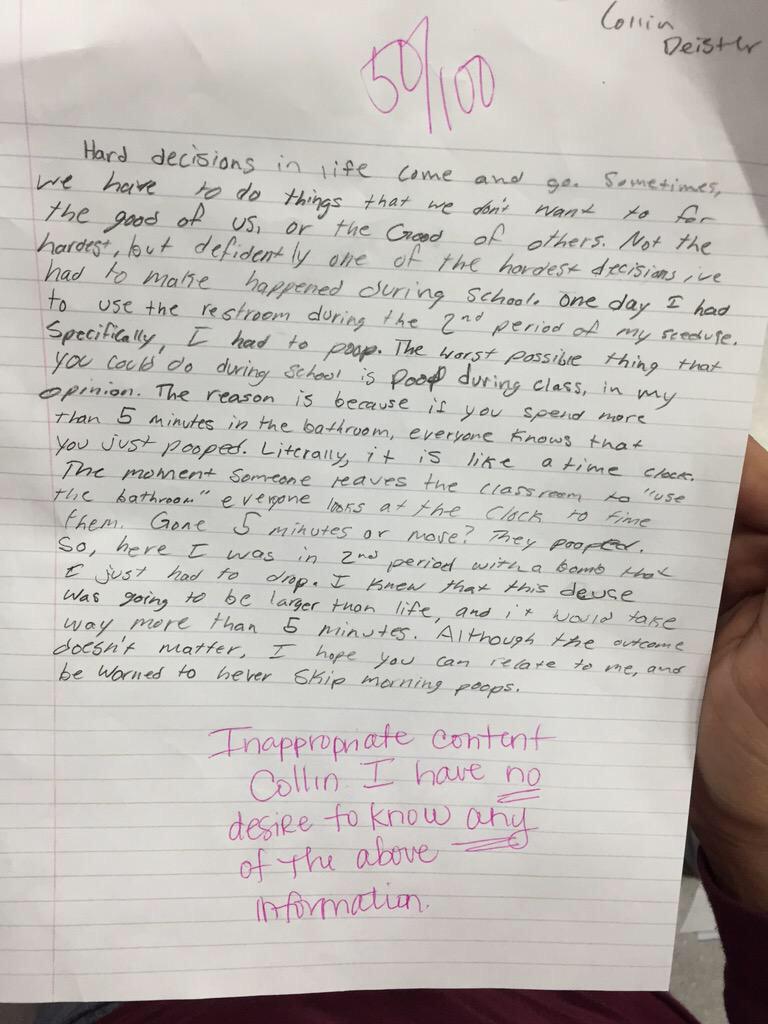 Collin
Deistler
50/100
Hard decisions in life come and go. Sometimes,
we have to do things that we don't want to for
the good of us, or the Good of others. Not the
hardest, but defidently one of the hardest decisions ive
had to make happened during school. One day I had
to use the restroom during the 2nd period of my sceduse.
Specifically, I had to poop. The worst possible thing that
you could do during school is poop during class, in my
opinion. The reason is because if you spend more
than 5 minutes in the bathroom, everyone knows that
you just pooped. Literally, it is like a time clock.
The moment someone leaves the classroom to "use
the bathroom" everyone looks at the clock to time
them. Gone 5 minutes or more? They poopted.
So, here I was in 2nd period with a bomb that
I just had to drop. I knew that this deuse
was going to be larger than life, and it would take
way more than 5 minutes. Although the outcome
doesn't matter, I hope you can relate to me, and
be warned to never skip morning poops.
Inappropriate content
Collin I have no
desire to know any
of the above
information.